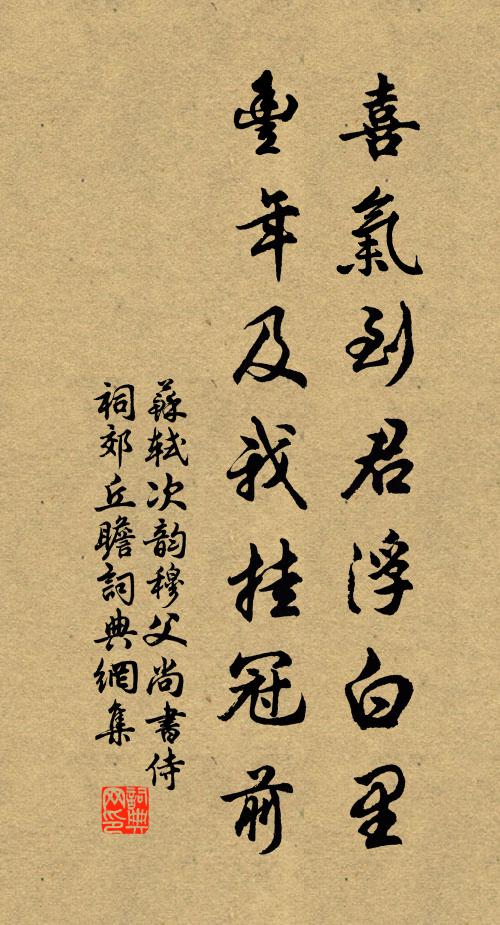 喜氣到君浮白里
豐年及我挂冠前
蘇軾次韵穆父尚書侍
祠郊丘瞻詞典網集
詞典網印